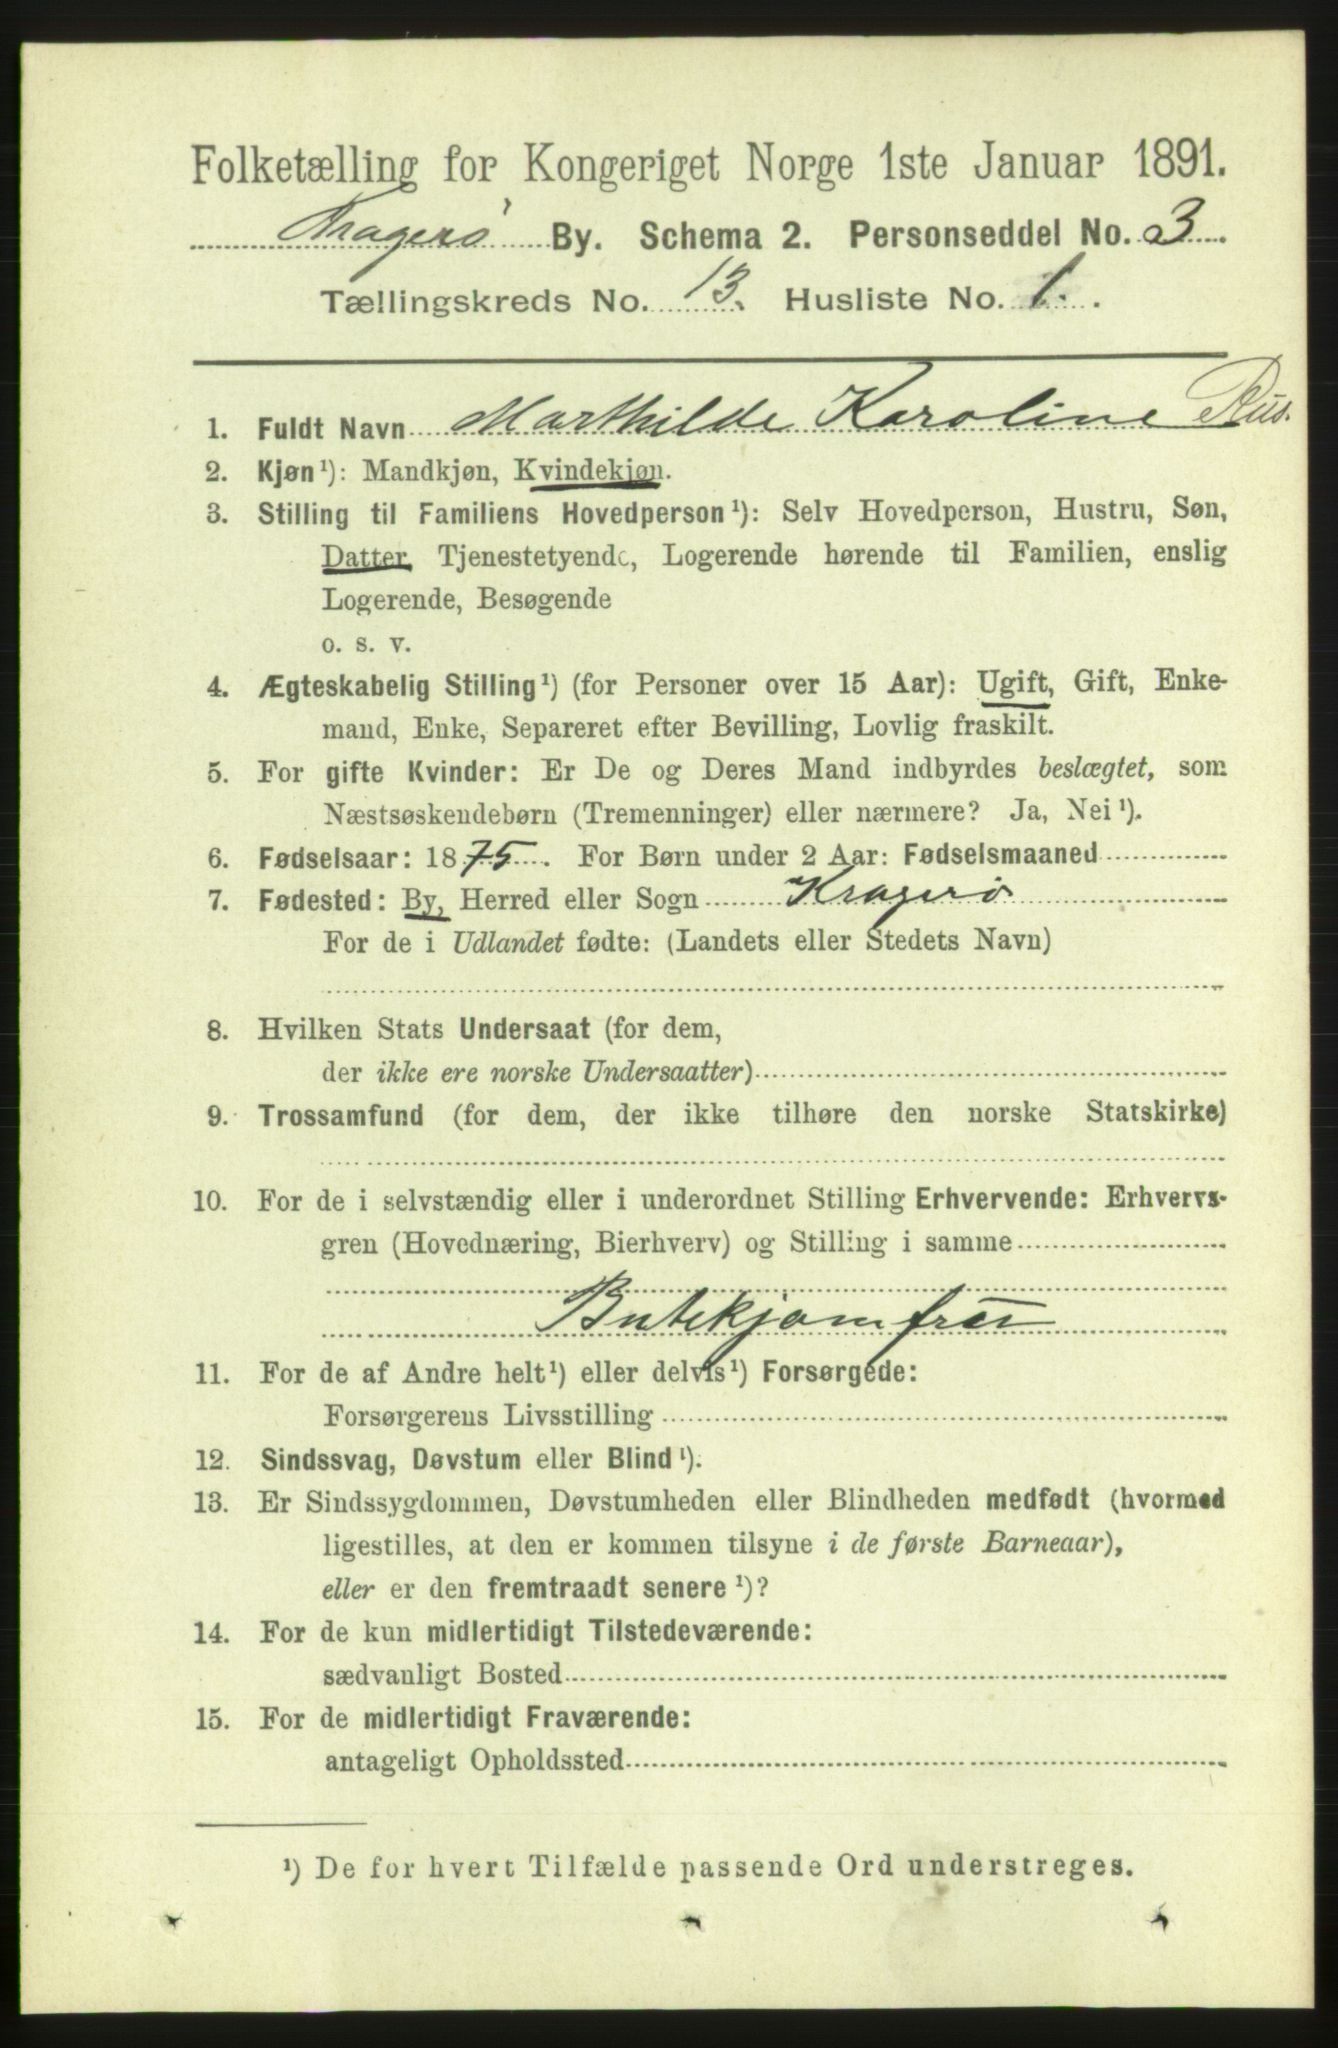 Folketælling for Kongeriget Norge 1ste Januar 1891.
Kragerø By. Schema 2. Personseddel No. 3
Tællingskreds No. 13. Husliste No. 1.
1. Fuldt Navn Marthilde Karoline Rus.
2. Kjøn¹): Mandkjøn, Kvindekjøn.
3. Stilling til Familiens Hovedperson¹): Selv Hovedperson, Hustru, Søn,
Datter, Tjenestetyende, Logerende hørende til Familien, enslig
Logerende, Besøgende
o. s. v.
4. Ægteskabelig Stilling¹) (for Personer over 15 Aar): Ugift, Gift, Enke-
mand, Enke, Separeret efter Bevilling, Lovlig fraskilt.
5. For gifte Kvinder: Er De og Deres Mand indbyrdes beslægtet, som
Næstsøskendebørn (Tremenninger) eller nærmere? Ja, Nei¹).
6. Fødselsaar: 1875. For Børn under 2 Aar: Fødselsmaaned
7. Fødested: By, Herred eller Sogn Kragerø
For de i Udlandet fødte: (Landets eller Stedets Navn)
8. Hvilken Stats Undersaat (for dem,
der ikke ere norske Undersaatter)
9. Trossamfund (for dem, der ikke tilhøre den norske Statskirke)
10. For de i selvstændig eller i underordnet Stilling Erhvervende: Erhvervs-
gren (Hovednæring, Bierhverv) og Stilling i samme
Butikjomfru
11. For de af Andre helt¹) eller delvis¹) Forsørgede:
Forsørgerens Livsstilling
12. Sindssvag, Døvstum eller Blind¹).
13. Er Sindssygdommen, Døvstumheden eller Blindheden medfødt (hvormed
ligestilles, at den er kommen tilsyne i de første Barneaar),
eller er den fremtraadt senere¹)?
14. For de kun midlertidigt Tilstedeværende:
sædvanligt Bosted
15. For de midlertidigt Fraværende:
antageligt Opholdssted
¹) De for hvert Tilfælde passende Ord understreges.